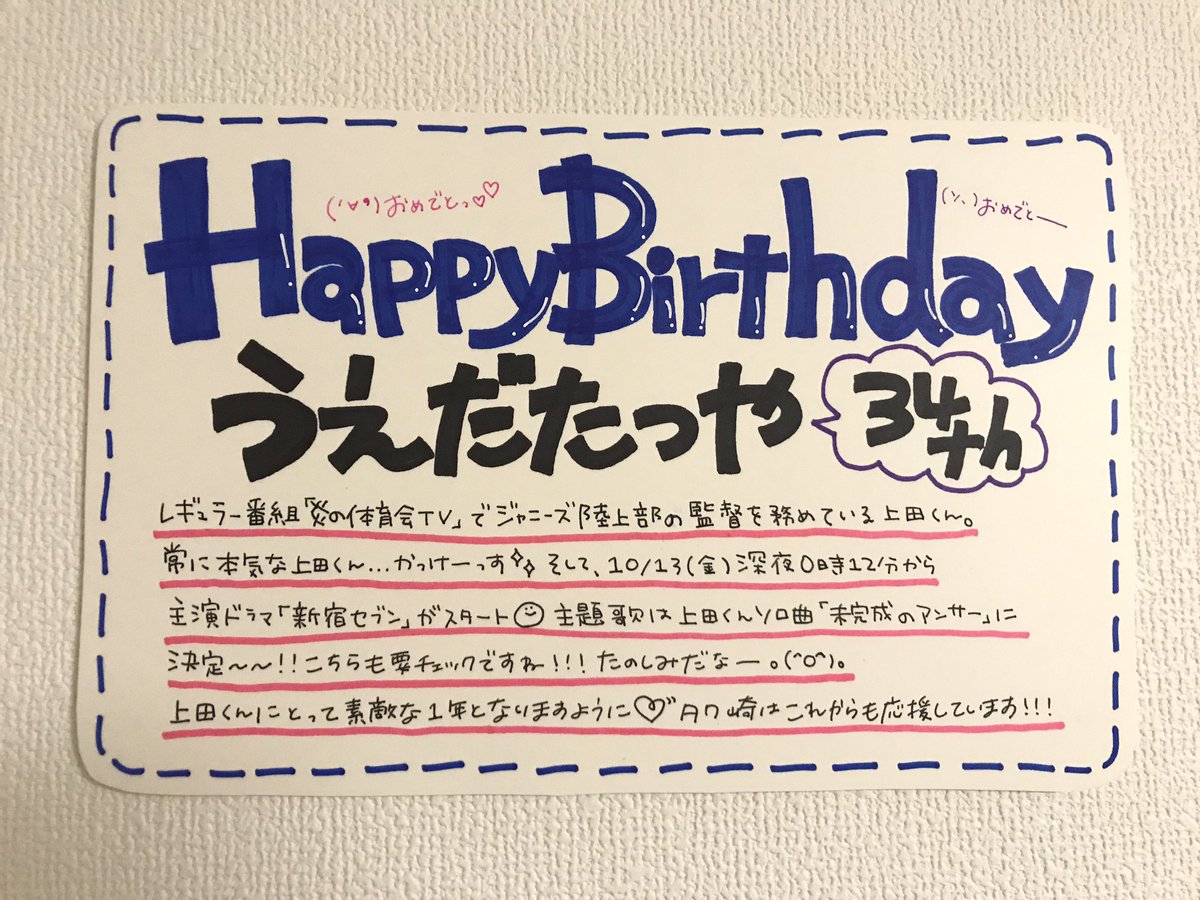 ('∀'*)おめでとっ♡♡
(ツ、)おめでとー
HappyBirthday
うえだたつや 34th
レギュラー番組「炎の体育会TV」でジャニーズ陸上部の監督を務めている上田くん。
常に本気な上田くん...かっけーっす✧✧ そして、10/13(金)深夜0時12分から
主演ドラマ「新宿セブン」がスタート☺ 主題歌は上田くんソロ曲「未完成のアンサー」に
決定〜〜!!こちらも要チェックですね!!!たのしみだなー。(^O^)。
上田くんにとって素敵な1年となりますように♡ タワ崎はこれからも応援しています!!!